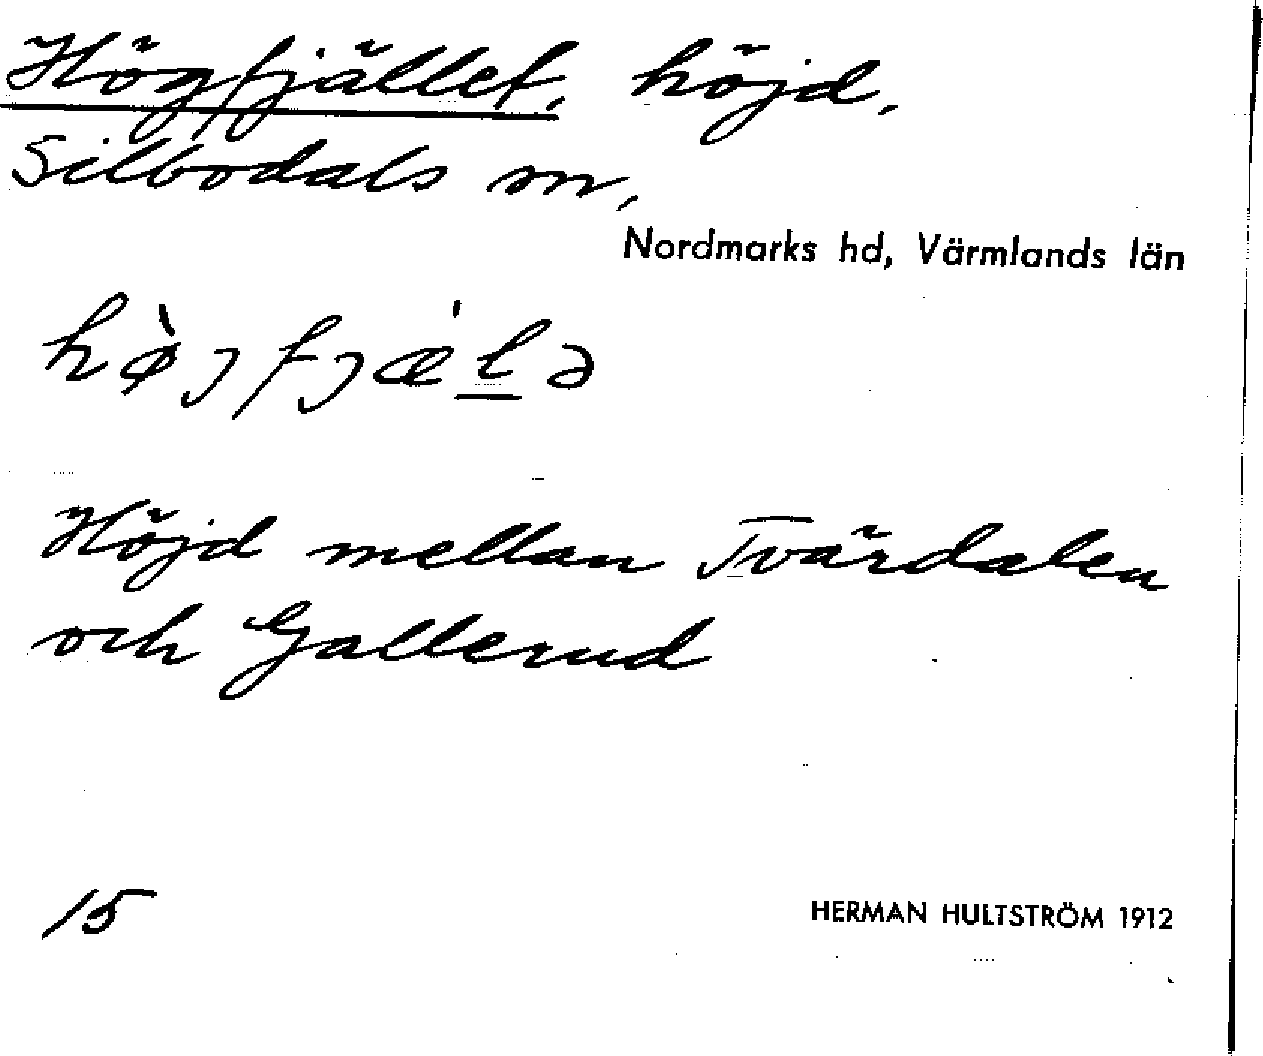 Högfjället, höjd,
Silbodals sn,
Nordmarks hd, Värmlands län
hø̀jfjæ̍l̲ə
Höjd mellan Tvärdalen
och Gallerud
15
HERMAN HULTSTRÖM 1912